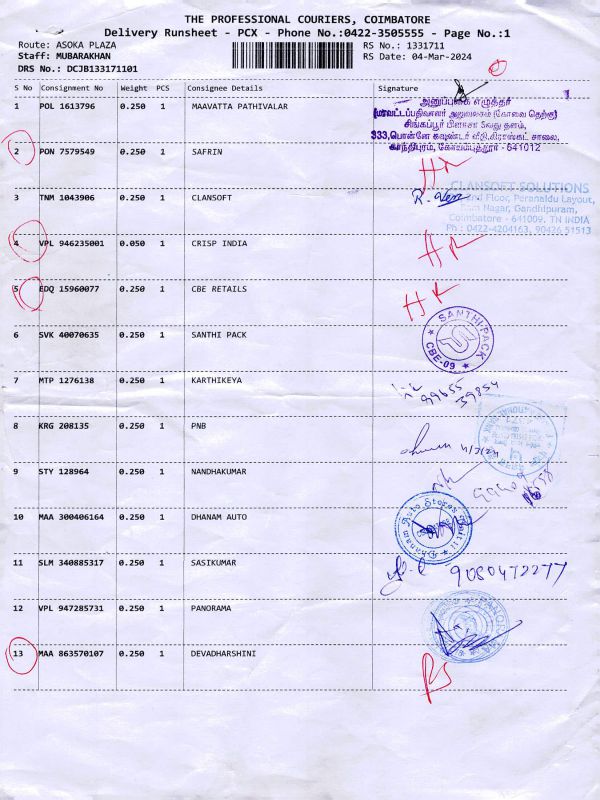 THE PROFESSIONAL COURIERS, COIMBATORE
Delivery Runsheet - PCX - Phone No.:0422-3505555 - Page No.:1
Route: ASOKA PLAZA RS No.: 1331711
Staff: MUBARAKHAN RS Date: 04-Mar-2024
DRS No.: DCJB133171101
S No Consignment No Weight PCS Consignee Details Signature
1 POL 1613796 0.250 1 MAAVATTA PATHIVALAR
அனுப்புகை எழுத்தர்
(மாவட்டப்பதிவாளர் அலுவலகம் (கோவை தெற்கு)
சிங்கப்பூர் பிளாசா 5வது தளம்,
333,பொன்னே கவுண்டர் வீடு,கிராஸ்கட் சாலை,
காந்திபுரம், கோயம்புத்தூர் - 641012
2 PON 7579549 0.250 1 SAFRIN
HR
3 TNM 1043906 0.250 1 CLANSOFT
CLANSOFT SOLUTIONS
2nd Floor, Peranaidu Layout,
Ram Nagar, Gandhipuram,
Coimbatore - 641009. TN INDIA
Ph : 0422-4204163, 90426 51513
4 VPL 946235001 0.050 1 CRISP INDIA
HR
5 EDQ 15960077 0.250 1 CBE RETAILS
HR
6 SVK 40070635 0.250 1 SANTHI PACK
SANTHI PACK
CBE-09
7 MTP 1276138 0.250 1 KARTHIKEYA
99655
39854
8 KRG 208135 0.250 1 PNB
4/3/24
9 STY 128964 0.250 1 NANDHAKUMAR
10 MAA 300406164 0.250 1 DHANAM AUTO
Dhanam Auto Stores
11 SLM 340885317 0.250 1 SASIKUMAR
9080472277
12 VPL 947285731 0.250 1 PANORAMA
PANORAMA
13 MAA 863570107 0.250 1 DEVADHARSHINI
RS